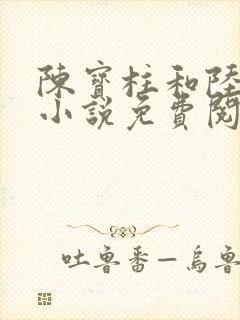 陳寶柱和陸
小說免費閱
吐魯番—烏魯